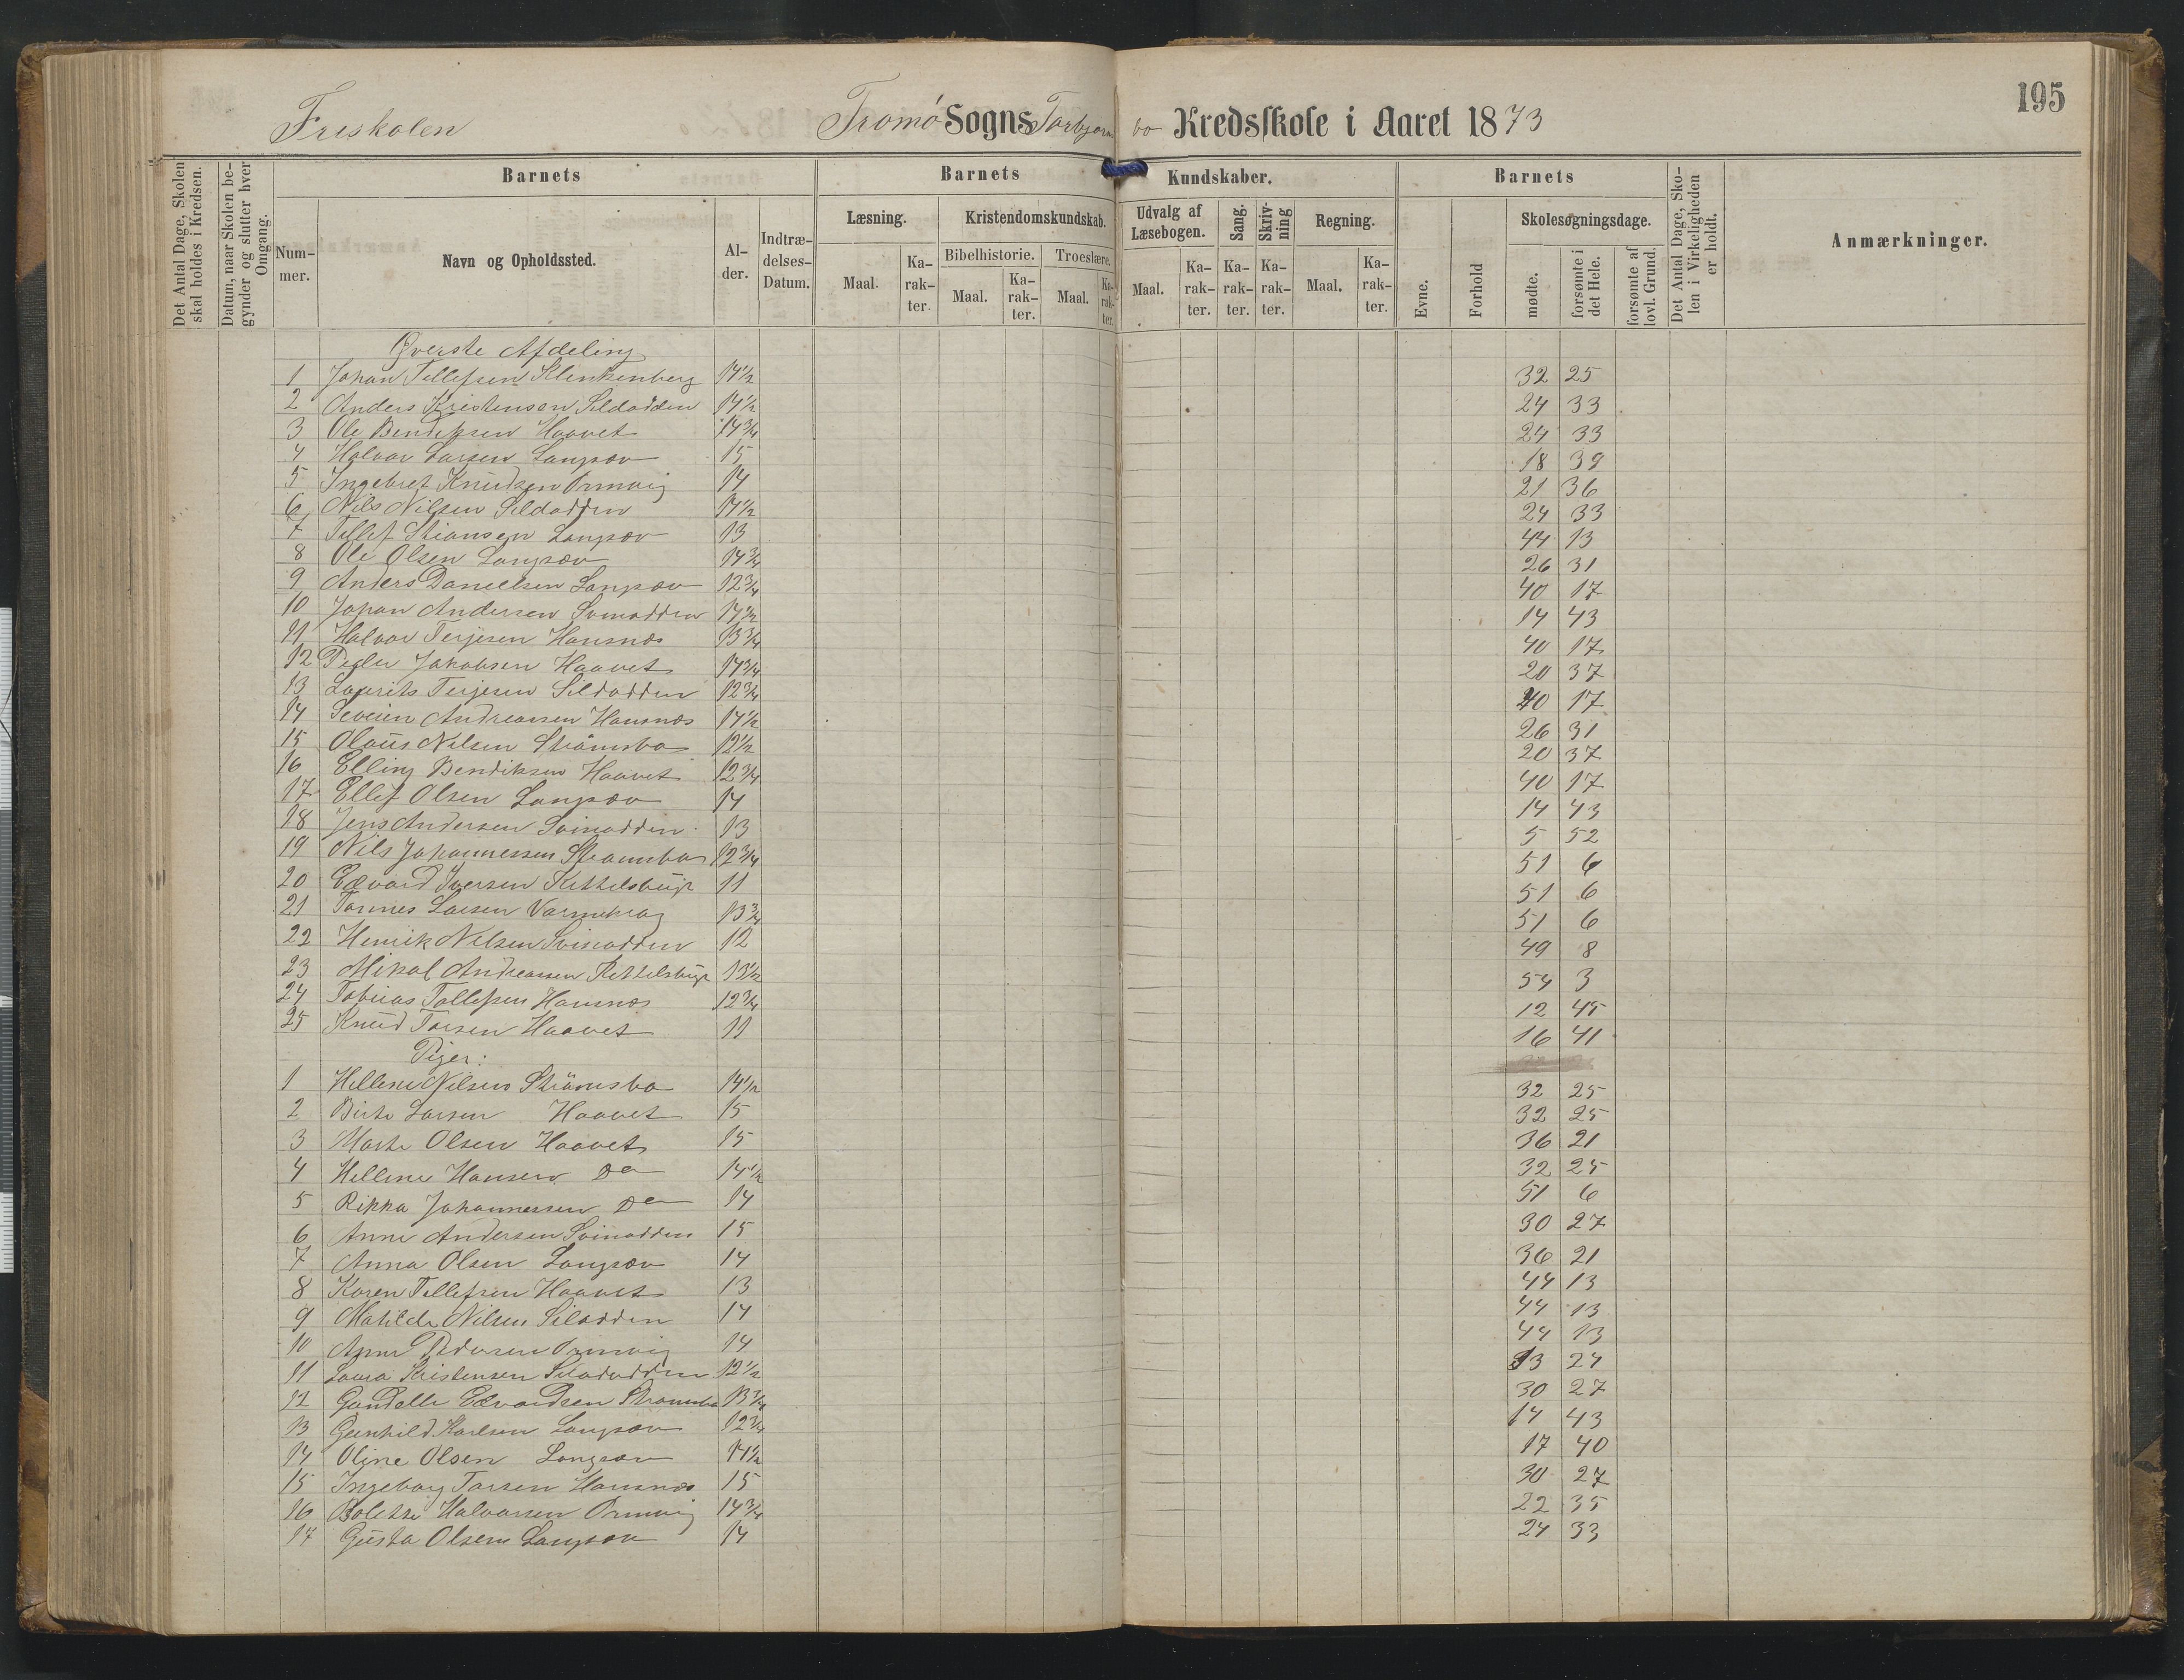 195
Friskolen Tromø Sogns Torbjørnsbo Kredsskole i Aaret 1873
Det Antal Dage, Skolen skal holdes i Kredsen.
Datum, naar Skolen begynder og slutter hver Omgang.
Barnets
Barnets Kundskaber.
Barnets
Nummer.
Navn og Opholdssted.
Alder.
Indtrædelses-Datum.
Læsning.
Kristendomskundskab.
Bibelhistorie.
Troeslære.
Udvalg af Læsebogen.
Sang.
Skrivning
Regning.
Maal.
Karakter.
Maal.
Karakter.
Maal.
Karakter.
Maal.
Karakter.
Karakter.
Karakter.
Maal.
Karakter.
Evne.
Forhold
Skolesøgningsdage.
mødte.
forsømte i det Hele.
forsømte af lovl. Grund.
Det Antal Dage, Skolen i Virkeligheden er holdt.
Anmærkninger.
Øverste Afdeling
1 Johan Tellefsen Klinkenberg 14½ 32 25
2 Anders Kristensen Sildodden 14½ 24 33
3 Ole Bendiksen Haavet 14¾ 24 33
4 Halvor Larsen Langsæv 15 18 39
5 Ingebret Knudsen Ormvig 14 21 36
6 Nils Nilsen Sildodden 14½ 24 33
7 Tellef Stiansen Langsæv 13 44 13
8 Ole Olsen Langsæv 14¾ 26 31
9 Anders Danielsen Langsæv 12¾ 40 17
10 Johan Andersen Svinodden 14½ 14 43
11 Halvor Terjesen Hansnæs 13¾ 40 17
12 Peder Jakobsen Haavet 14¾ 20 37
13 Laurits Terjesen Sildodden 12¾ 40 17
14 Severin Andreassen Hansnæs 14½ 26 31
15 Olaus Nilsen Strømsbo 12½ 20 37
16 Elling Bendiksen Haavet 12¾ 40 17
17 Ellef Olsen Langsæv 14 14 43
18 Jens Andersen Svinodden 13 5 52
19 Nils Johannessen Strømsbo 12¾ 51 6
20 Edvard Iversen Kittelsbugt 11 51 6
21 Tønnes Larsen 13¾ 51 6
22 Henrik Nilsen Svinodden 12 49 8
23 Mikal Andreassen Kittelsbugt 13½ 54 3
24 Tobias Tallefsen Hansnæs 12¾ 12 45
25 Knud Torsen Haavet 11 16 41
Piger:
1 Helline Nilsen Strømsbo 14½ 32 25
2 Birte Larsen Haavet 15 32 25
3 Marte Olsen Haavet 15 36 21
4 Helline Hansen Do 14½ 32 25
5 Rikka Johannessen Do 14 51 6
6 Anne Andersen Svinodden 15 30 27
7 Anna Olsen Langsæv 14 36 21
8 Karen Tellefsen Haavet 13 44 13
9 Matilde Nilsen Silodden 14 44 13
10 Anne Pedersen Ormvig 14 44 13
11 Laura Kristensen Sildodden 12½ 33 24
12 Gundelle Edvardsen Strømsbo 13¾ 30 27
13 Gunhild Karlsen Langsæv 12¾ 14 43
14 Oline Olsen Langsæv 14½ 17 40
15 Ingeborg Torsen Hansnæs 15 30 27
16 Bolette Halvorsen Ormvig 14¾ 22 35
17 Gusta Olsen Langsæv 14 24 33